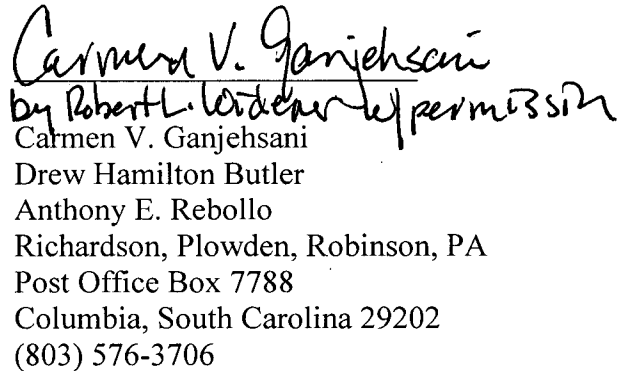 Carmen V. Ganjehsani
by Robert L. Widener w/permission
Carmen V. Ganjehsani
Drew Hamilton Butler
Anthony E. Rebollo
Richardson, Plowden, Robinson, PA
Post Office Box 7788
Columbia, South Carolina 29202
(803) 576-3706